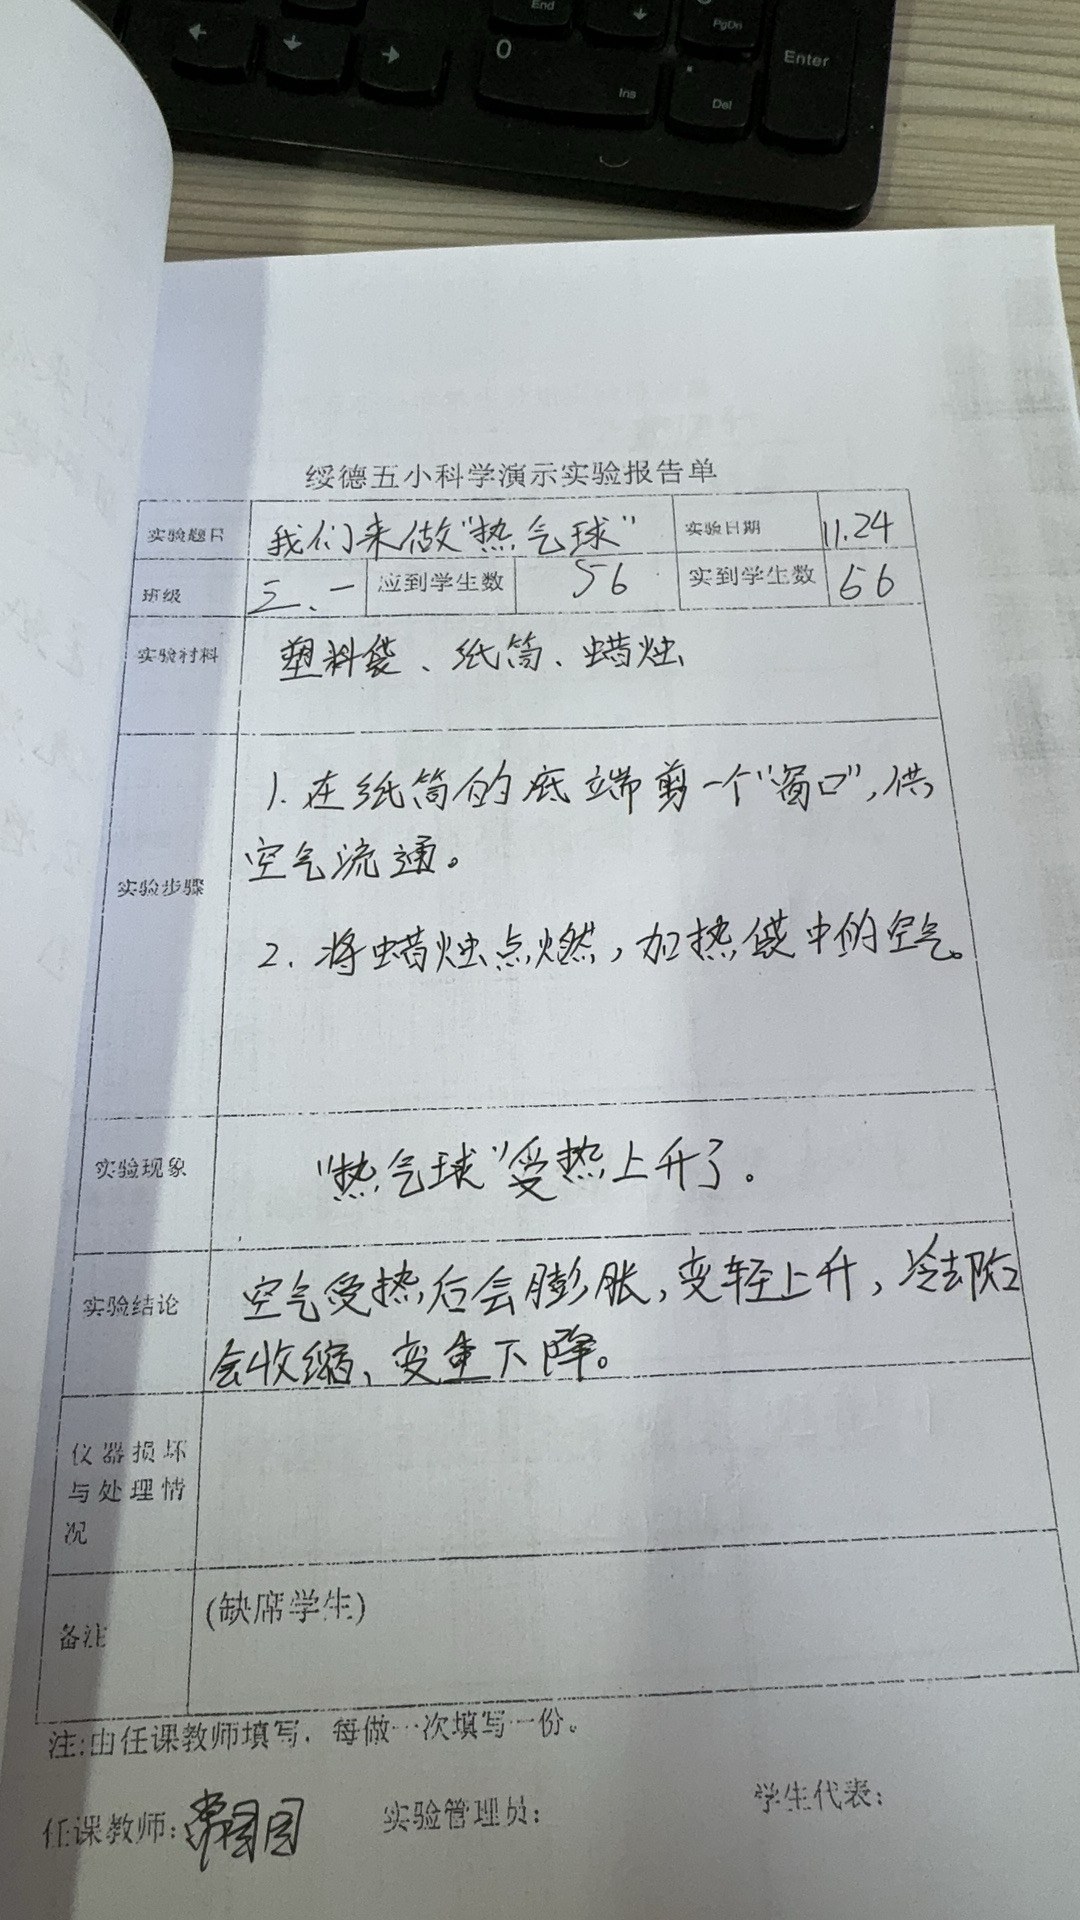 End
PgDn
Enter
0
Ins
Del
绥德五小科学演示实验报告单
实验题目 我们来做“热气球” 实验日期 11.24
班级 三、一 应到学生数 56 实到学生数 56
实验材料 塑料袋、纸筒、蜡烛
1. 在纸筒的底端剪一个“窗口”,供
空气流通。
实验步骤
2. 将蜡烛点燃,加热袋中的空气。
实验现象 “热气球”受热上升了。
空气受热后会膨胀,变轻上升,冷却后
实验结论
会收缩、变重下降。
仪器损坏
与处理情
况
(缺席学生)
备注
注:由任课教师填写,每做一次填写一份。
任课教师: 实验管理员: 学生代表: